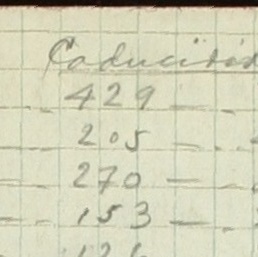 Caducidad
429 —
205 —
270 —
153 —